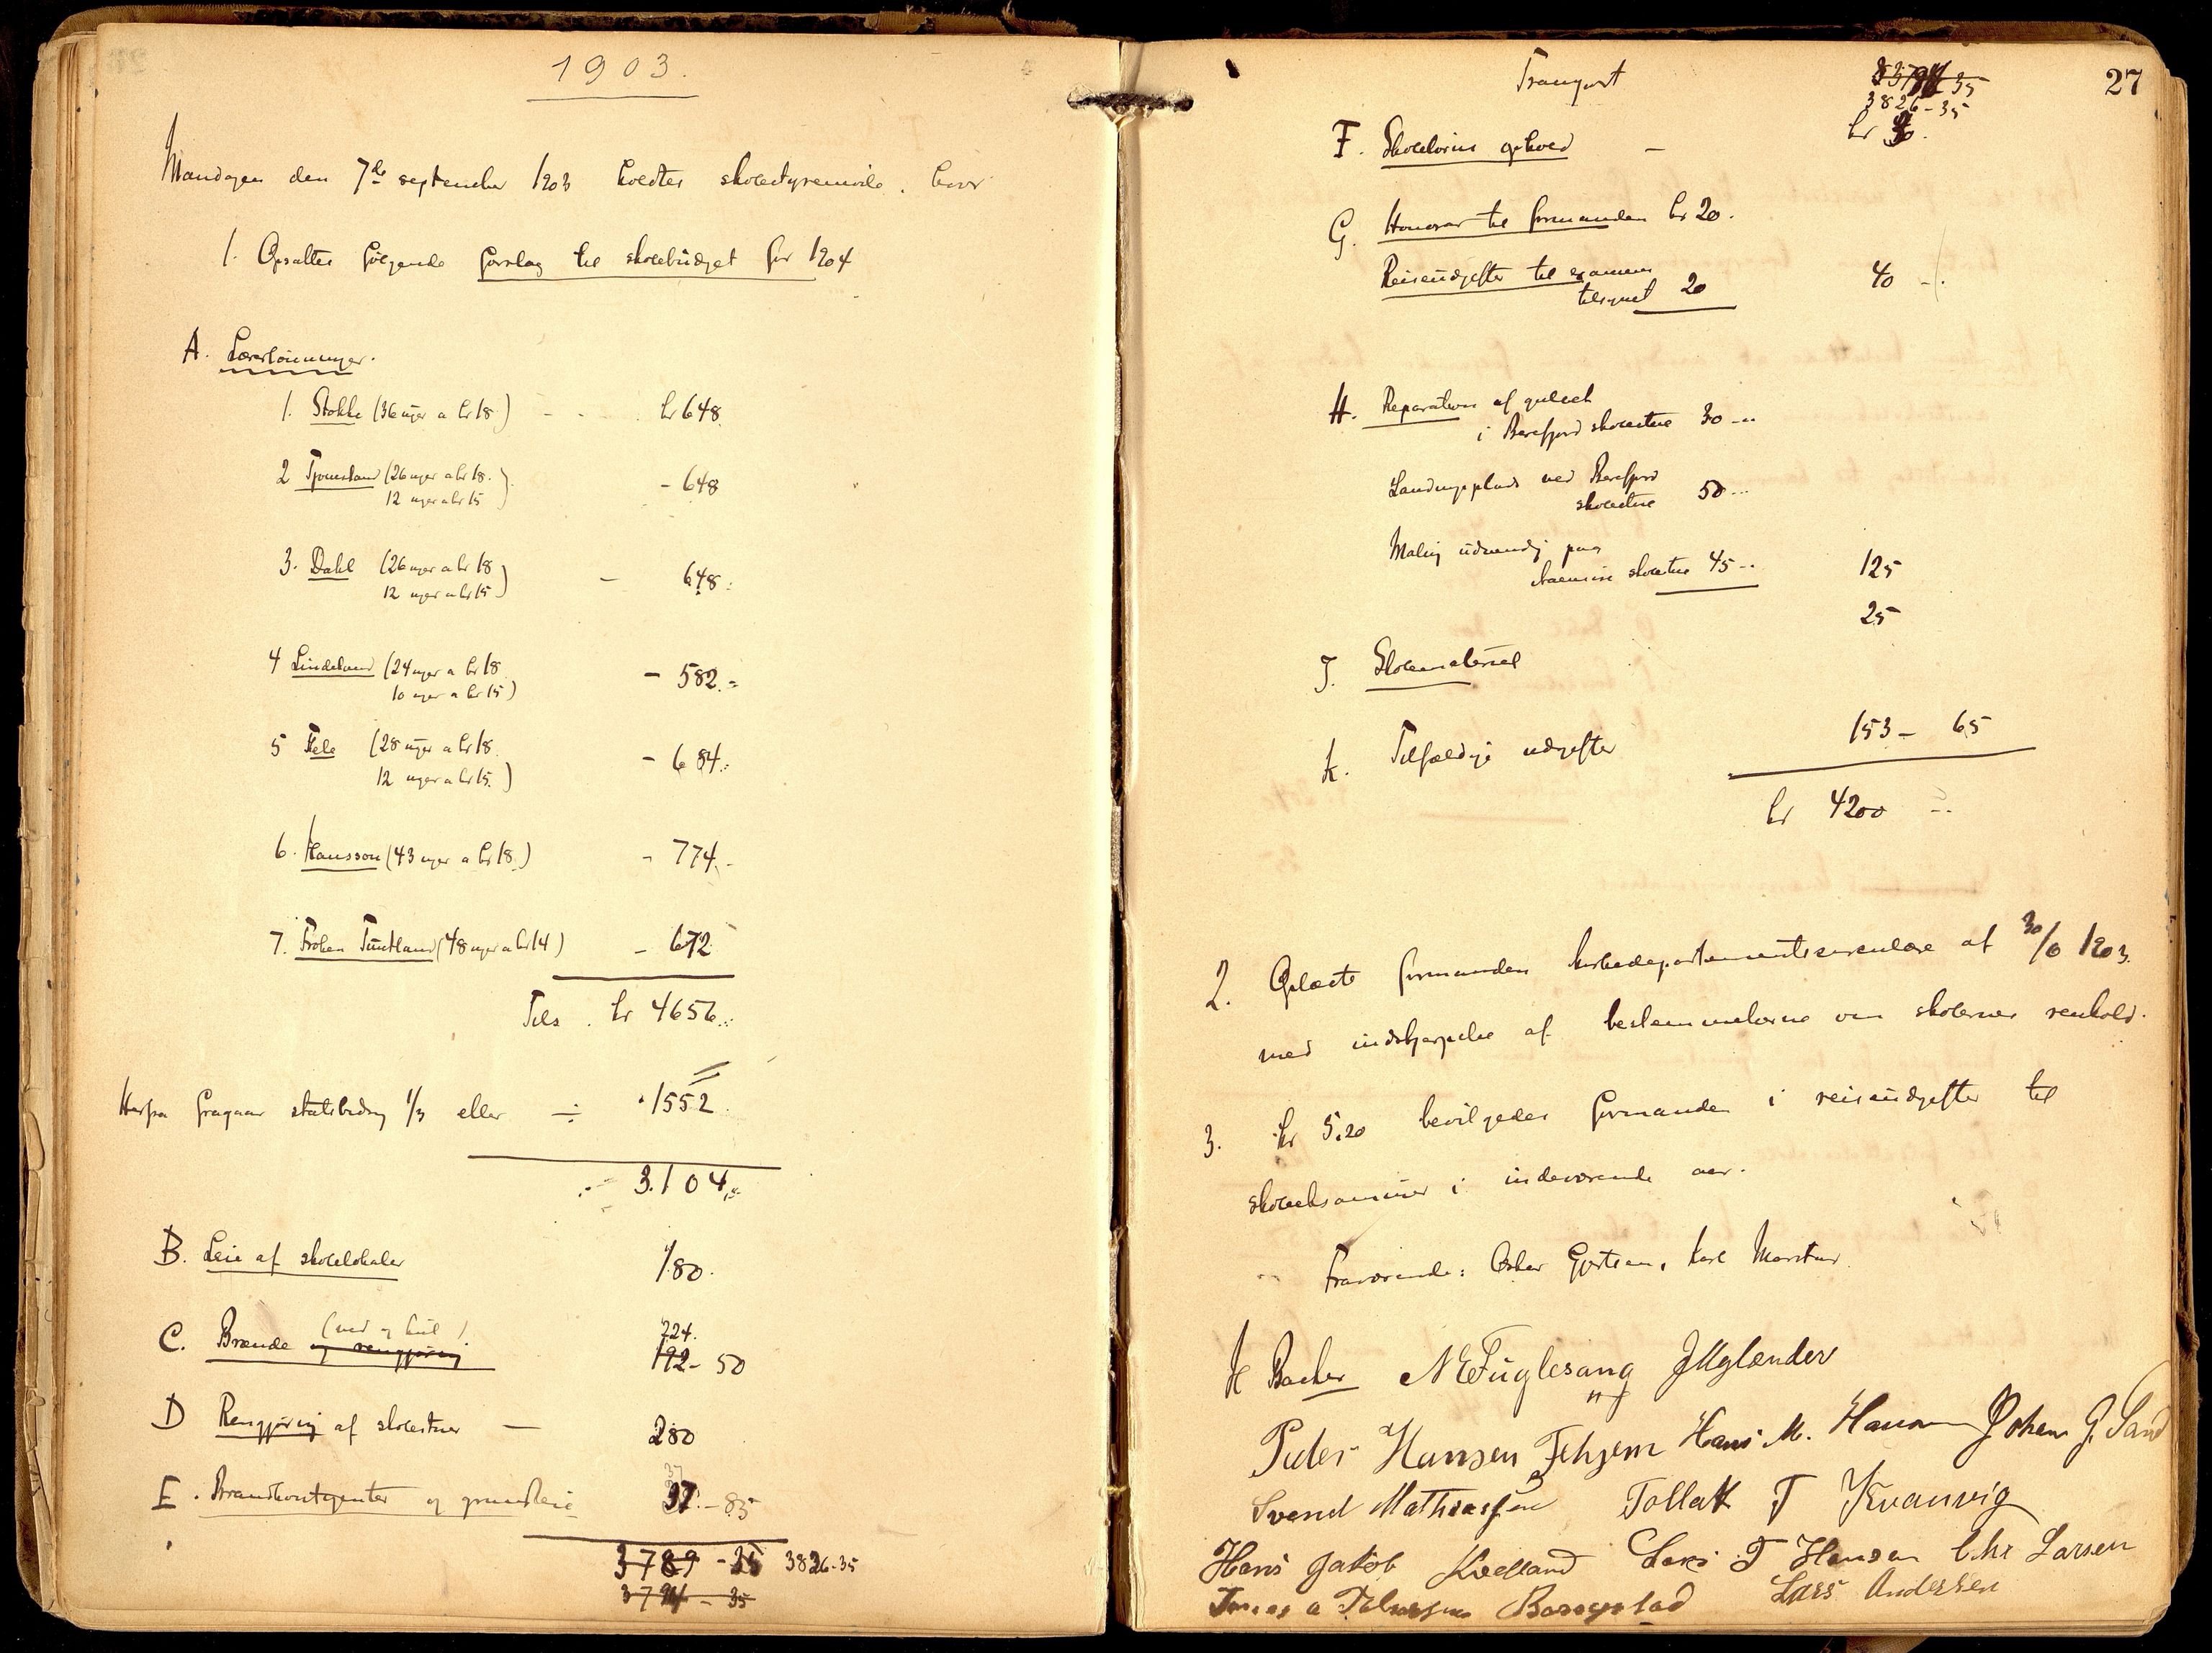 1903.
Mandagen den 7de september 1903 holdtes skolestyremøde, hvor
1. Opsattes følgende forslag til skolebudget for 1904
A. Lærerlønninger.
1. Stokke (36 uger a kr 18) - - kr 648.
2 Tjomsland (26 uger a kr 18. - 648
12 uger a kr 15)
3. Dahl (26 uger a kr 18 - 648.-
12 uger a kr 15)
4 Lindeland (24 uger a kr 18. - 582.-
10 uger a kr 15)
5 Fiele (28 uger a kr 18. - 684.-
12 uger a kr 15.)
6. Hansson (43 uger a kr 18.) - 774.-
7. Frøken Tuntland (48 uger a kr 14) - 672
Tils. kr 4656.-
Herfra fragaar statsbidrag 1/3 eller ÷ 1552.
3.104,-
B. Leie af skolelokaler 180.
(ved og kul) 224.
C. Brænde og rengjøring 192- 50
D Rengjøring af skolestuer - 280
37
E. Brandkontigenter og grundleie 37.-85
3789 - 35 3826-35
3794 - 35
27
Transport 3794-35
3826-35
F. Skolelovens - kr 30.
G. Honorar til formanden kr 20.
Reiseudgifter til examens
tilsynet 20 40 -
H. Reparation af gulvet
i Barefjord skolestue 30 --
Landingsplads ved Barefjord
skolestue 50--
Maling udvendig paa
skolestue 45-- 125
25
J. Skolemateriel
K. Tilfældige udgifter 153- 65
kr 4200 --
2. Oplæste formanden kirkedepartementscirculære af 30/6 1903.
med indskjærpelse af bestemmelserne om skolernes renhold.
3. kr 5,20 bevilgedes formanden i reiseudgifter til
skoleeksaminer i indeværende aar.
Fraværende: Oskar Gjertsen, Karl
K Backer N E Fuglesang J Uglænder
Peder Hansen Hans M. Hansen Johan G. Sand
Svend Mathiassen Tollak T Kvanvig
Hans Jakob Kvelland Lars T Hansen Chr Larsen
Lars Andersen